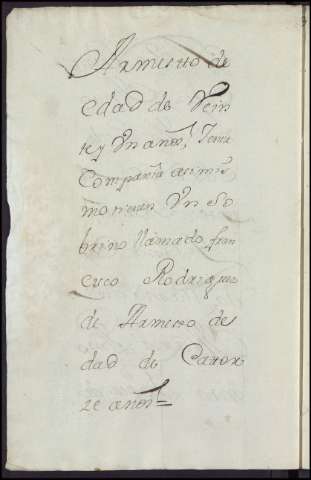 Armesto de
edad de Vein
te y Un años, Tenia
Compañia asimis
mo tienen Un So
brino llamado fran
cisco Rodriguez
de Armesto de e
dad de Cator
ze años =